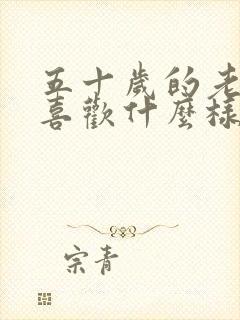 五十歲的老
喜歡什麼樣
宗青